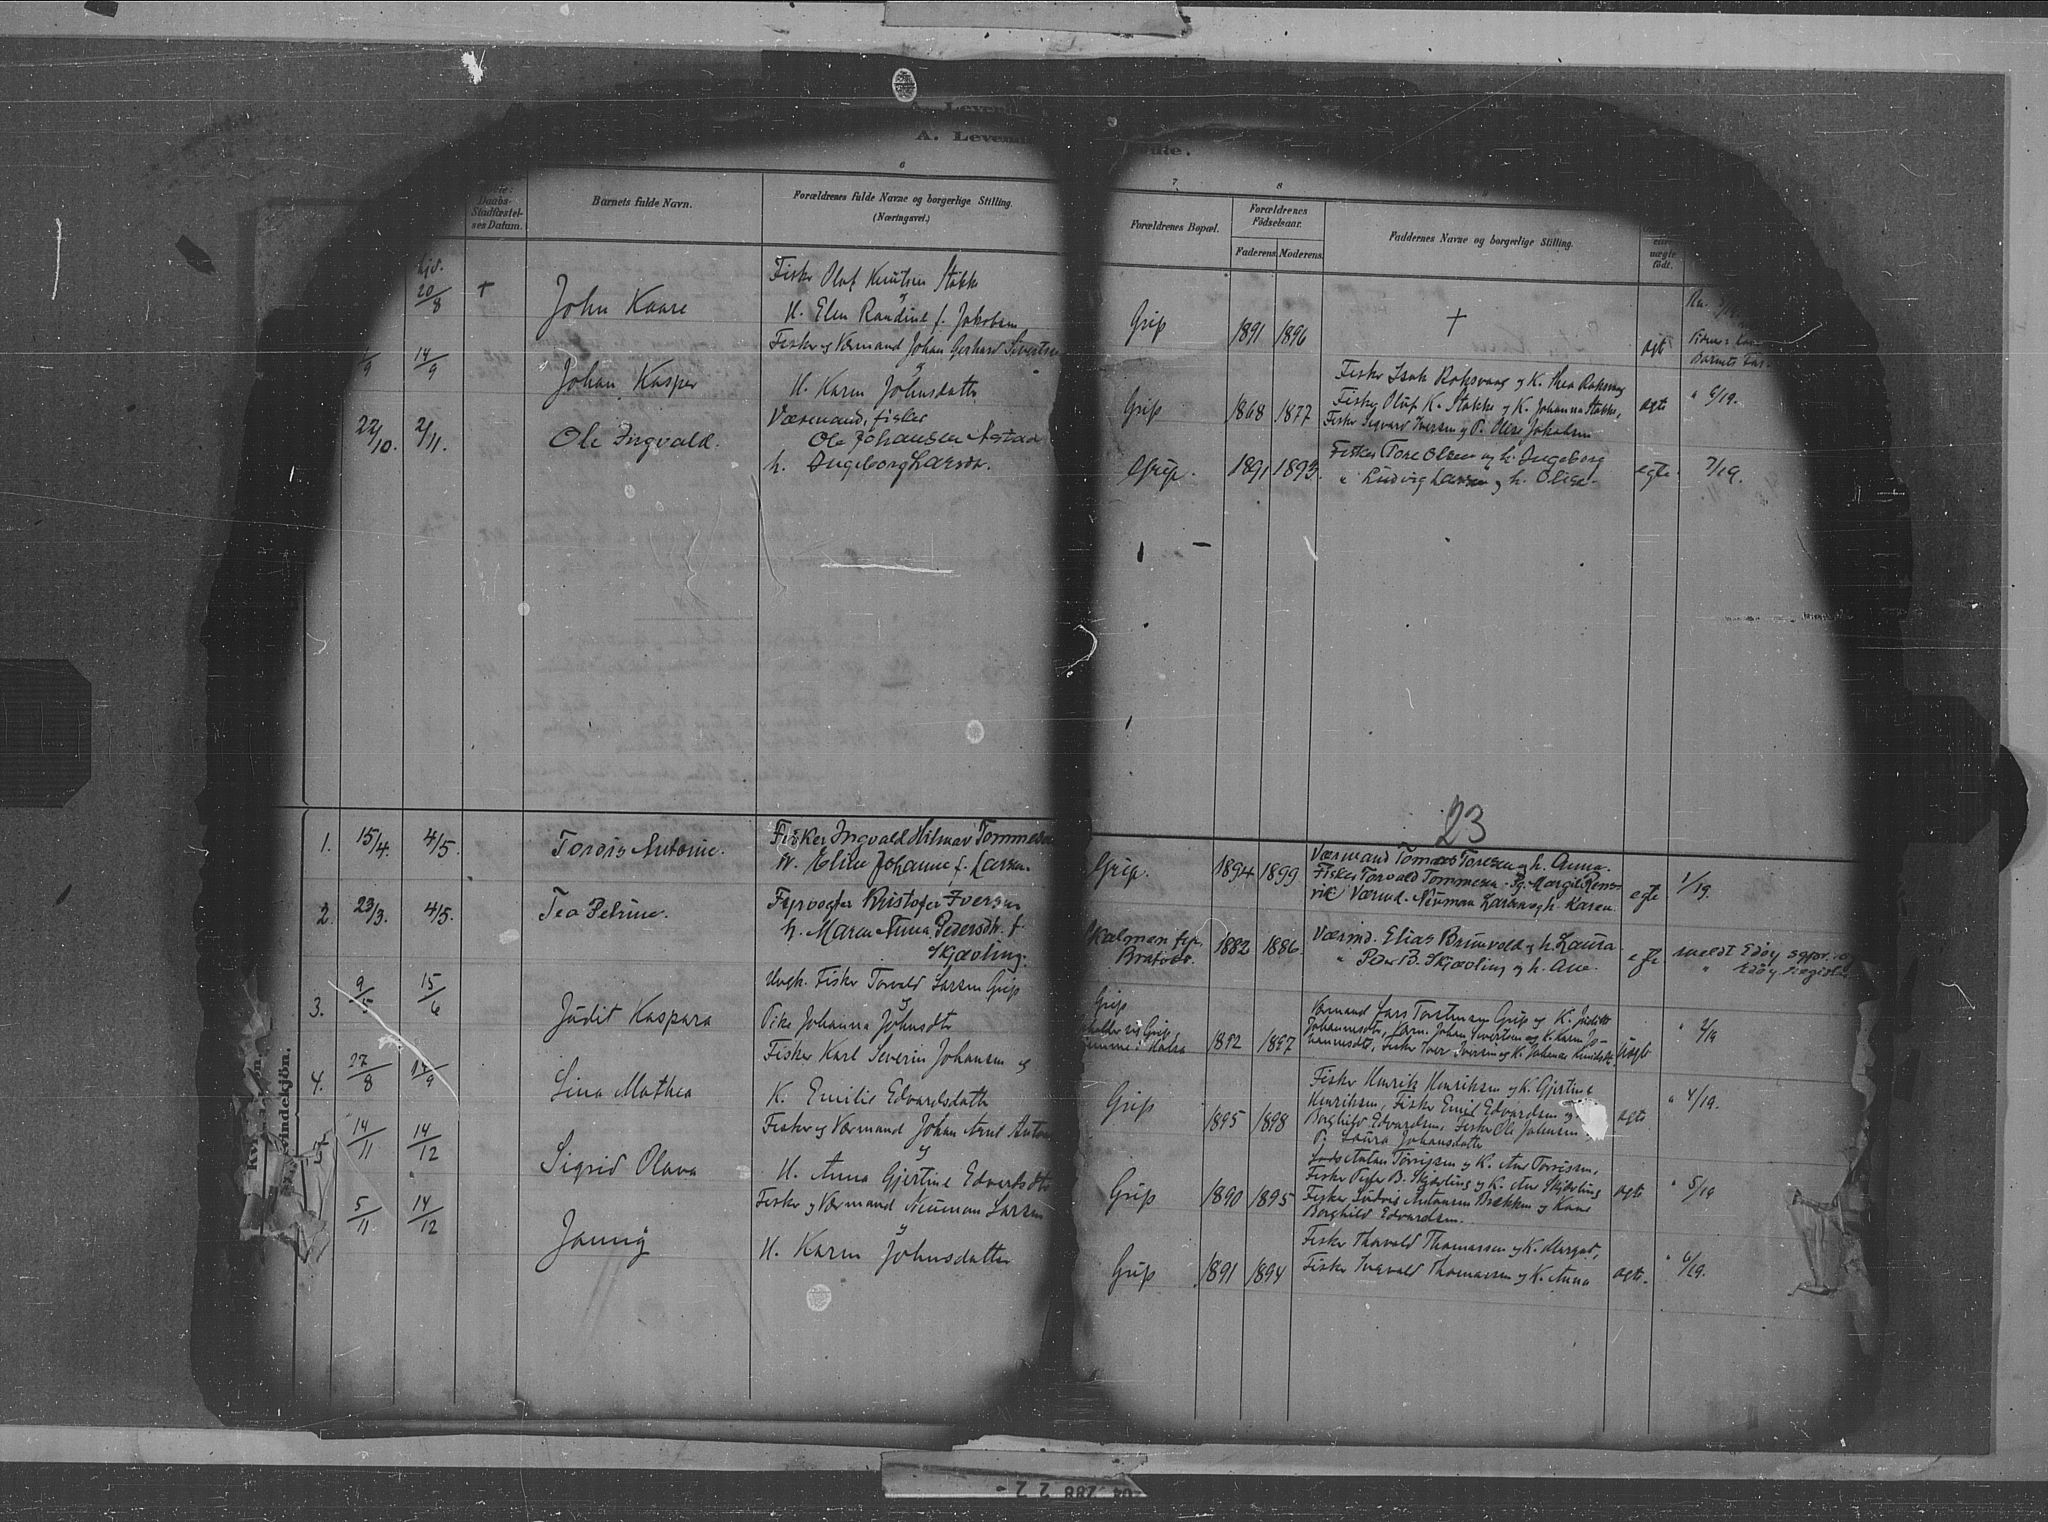 A. Levende
6
7
8
Daabs-
Stadfæstel-
ses Datum.
Barnets fulde Navn.
Forældrenes fulde Navne og borgerlige Stilling.
(Næringsvei.)
Forældrenes Bopæl.
Forældrenes
Födselsaar.
Faderens. Moderens.
Faddernes Navne og borgerlige Stilling.
uægte
födt.
hjd.
20/8
+
John Kaare
Fisker Oluf Knutsen Stokke
og
H. Elen Randine f. Jakobsen
Grip
1891 1896
+
ægte
Barnets Far.
1/9
14/9
Johan Kasper
Fisker og Værmand Johan Gerhard Sivertsen
og
H. Karen Johnsdatter
Grip
1868 1877
Fisker Isak Roksvaag og K. Thea Roksvaag
Fisker Oluf K. Stokke og K. Johanna Stokke,
Fisker Sigvard Iversen og P. Olise Jakobsen
ægte
" 6/19.
22/10.
2/11.
Ole Ingvald.
Værmand, fisker
Ole Johansen
h. Ingeborg Larsdr.
Grip.
1891 1893.
Fisker Tore Olsen og h. Ingeborg
" Ludvig Larsen og h. Olise.
egte.
7/19.
23
Kvindekjön.
1.
15/4.
4/5.
Tordis Antonie.
Fisker Ingvald Hilmar Tommesen
H. Eline Johanne f. Larsen.
Grip.
1894 1899
Værmand Tomas Toresen og h. Anna.
Fisker Torvald Tommesen. Pg. Margit Rems-
vik Værmd. Neuman Larsen og h. Karen.
egte
1/19.
2.
23/3.
4/5.
Tea Petrine.
Fyrvogter Kristofer Iversen
h. Maren Anna Pedersdtr. f.
Skjevling.
Skalmen fyr,
1882 1886.
Værmd. Elias Brunvold og h. Laura
" Peder B. Skjevling og h. Ane.
egte
meldt Edöy
" Edöy
3.
9/5
15/6
Judit Kaspara
Ungk. Fisker Torvald Larsen Grip
og
Pike Johanna Johnsdtr
Grip
1892 1897
Værmand Lars Torstensen Grip og K. Judith
Johannesdtr, Værm. Johan Sivertsen og K. Karen Jo-
hannesdtr, Fisker Iver Iversen og K. Johanna Knudsdtr
uægte
" 2/19
4.
27/8
14/9
Lina Mathea
Fisker Karl Severin Johansen og
K. Emilie Edvardsdatter
Grip
1895 1898
Fisker Henrik Henriksen og K. Gjertine
Henriksen, Fisker Emil Edvardsen og
Borghild Edvardsen, Fisker Ole Johnsen
P. Laura Johansdatter
ægte
" 4/19.
5
14/11
14/12
Sigrid Olava
Fisker og Værmand Johan Arnt Anton
og
H. Anna Gjertine Edvardsdtr
Grip
1890 1895
Lods Antan Torrissen og K. Ane Torrissen,
Fisker Peder B. Skjevling og K. Ane Skjevling
Fisker Ludvig Antonsen Brekken og Kone
Borghild Edvardsen.
ægte
" 5/19
5/11
14/12
Jenny
Fisker og Værmand Neuman Larsen
og
H. Karen Johnsdatter
Grip
1891 1894
Fisker Thorvald Thomassen og K. Margot,
Fisker Ingvald Thomassen og K. Anna
ægte.
" 6/19.